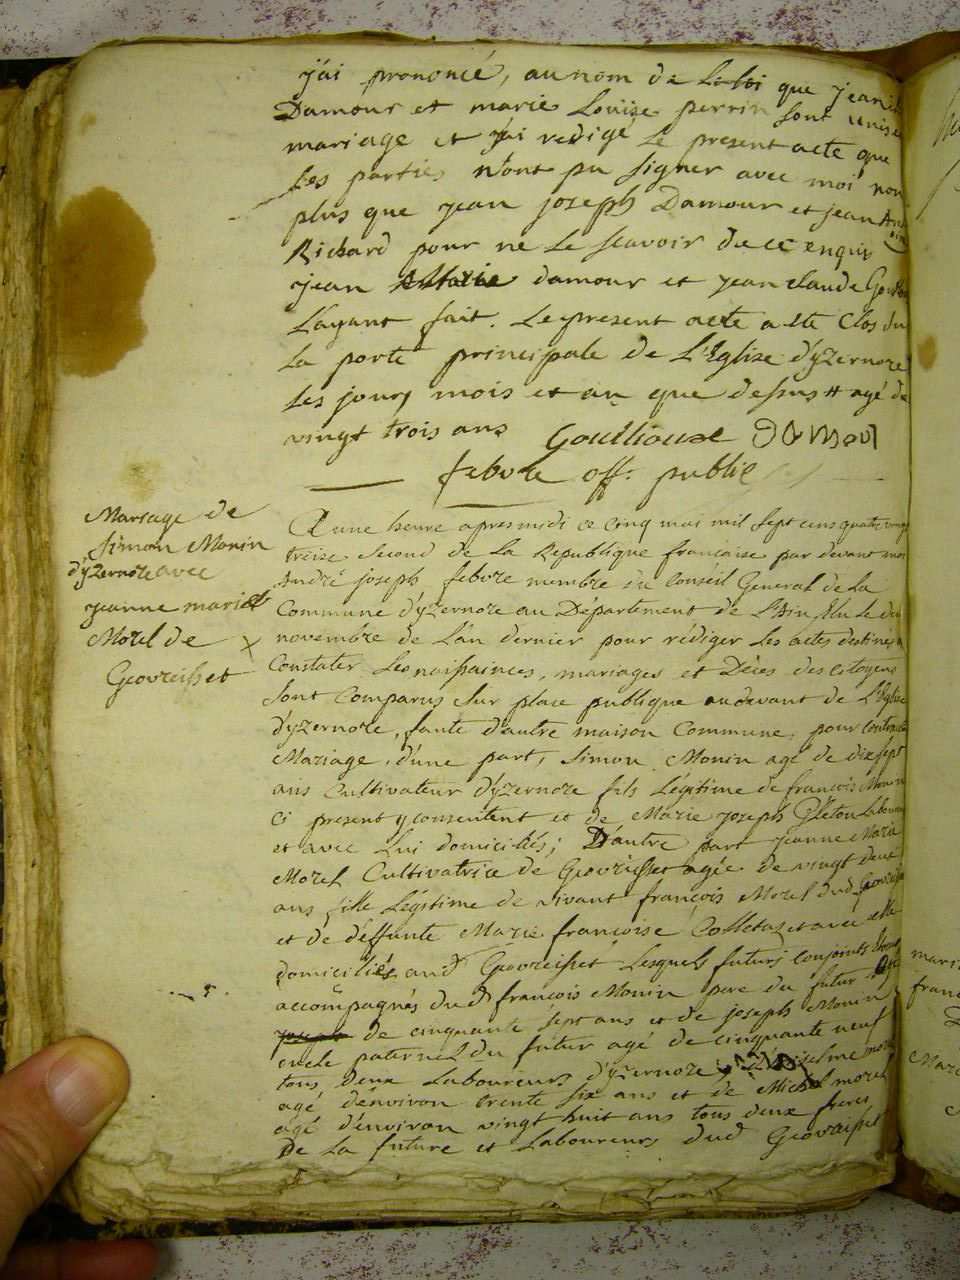 j'ai prononcé, au nom de La Loi que jean
Damour et marie Louise perrin sont unis en
mariage et j'ai redigé Le present acte que
Les parties n'ont pu signer avec moi non
plus que jean joseph Damour et jean
Richard pour ne Le scavoir de ce enquis
jean damour et jean claude
L'ayant fait. Le present acte a été Clos
La porte principale de L'Eglise d'yzernore
Les jour, mois et an que dessus # agé de
vingt trois ans Goulliouse Damour
febvre off. public
Mariage de
Simon Monin
d'yzernore avec
jeanne marie
Morel de
Geovreisset
A une heure apres midi ce cinq mai mil sept cens quatre vingt
treize second de La Republique francaise par devant moi
André joseph febvre membre du Conseil General de La
Commune d'yzernore au Département de L'Ain, élu Le
novembre de L'an dernier pour rédiger Les actes destinés a
Constater Les naissances, mariages et Décès des citoyens
Sont Comparus Sur place publique au devant de L'Eglise
d'yzernore, faute d'autre maison Commune, pour contracter
Mariage, d'une part, Simon Monin agé de dix sept
ans Cultivateur d'yzernore fils Légitime de francois Monin
Ci present y consentent et de Marie joseph Laboureur
et avec Lui domiciliés; D'autre part jeanne Marie
Morel Cultivatrice de Geovreisset agée de vingt deux
ans fille Légitime de vivant francois Morel dud. Geovreisset
et de deffunte Marie francoise Colletaz et avec elle
domiciliés aud. Geovreisset Lesquels futurs conjoints étant
accompagnés dud. francois Monin pere du futur agé
de cinquante sept ans et de joseph Monin
oncle paternel du futur agé de cinquante neuf
tous Deux Laboureurs d'yzernore; morel
agé d'environ trente six ans et de Michel morel
agé d'environ vingt huit ans tous deux freres
De La future et Laboureurs dud. Geovreisset